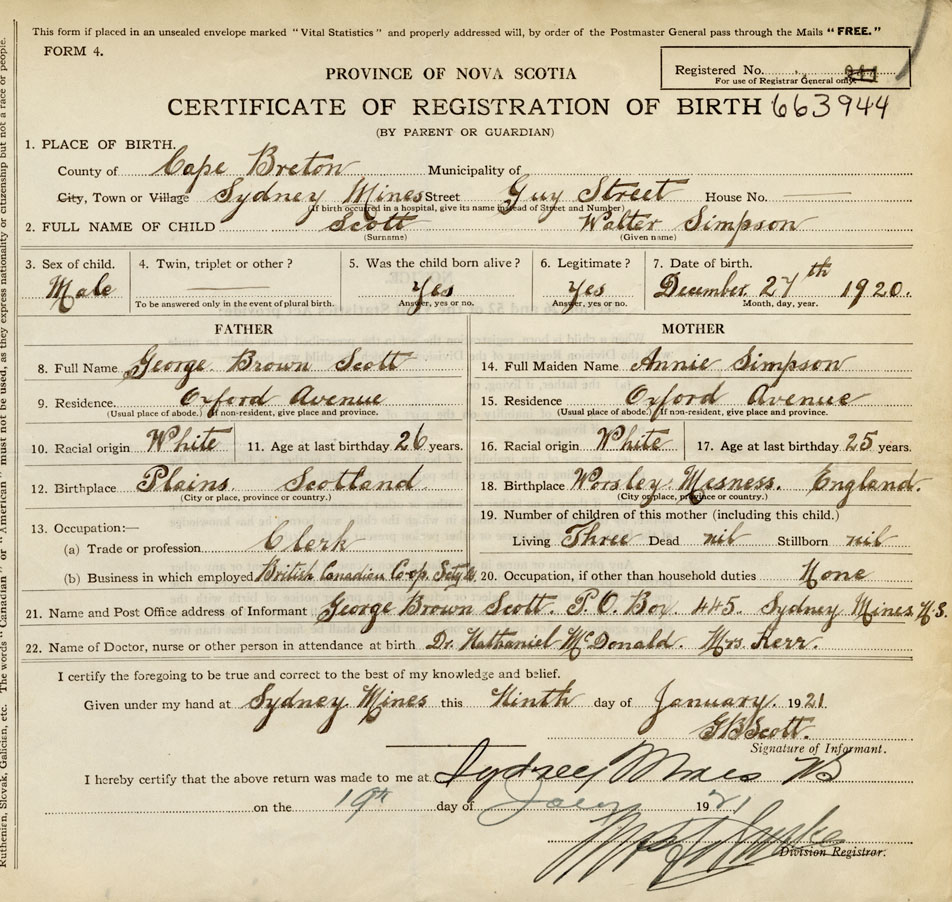 This form if placed in an unsealed envelope marked "Vital Statistics" and properly addressed will, by order of the Postmaster General pass through the Mails "FREE."
FORM 4.
Registered No.
For use of Registrar General only.
PROVINCE OF NOVA SCOTIA
CERTIFICATE OF REGISTRATION OF BIRTH 663944
(BY PARENT OR GUARDIAN)
1. PLACE OF BIRTH.
County of Cape Breton Municipality of
City, Town or Village Sydney Mines Street Guy Street House No.
(If birth occurred in a hospital, give its name instead of Street and Number)
2. FULL NAME OF CHILD Scott Walter Simpson
(Surname) (Given name)
3. Sex of child. 4. Twin, triplet or other? 5. Was the child born alive? 6. Legitimate? 7. Date of birth.
Male Yes Yes December 27th 1920.
To be answered only in the event of plural birth. Answer, yes or no. Answer, yes or no. Month, day, year.
FATHER MOTHER
8. Full Name George Brown Scott 14. Full Maiden Name Annie Simpson
9. Residence. Oxford Avenue 15. Residence Oxford Avenue
(Usual place of abode.) If non-resident, give place and province. (Usual place of abode.) If non-resident, give place and province.
10. Racial origin White 11. Age at last birthday 26 years. 16. Racial origin White 17. Age at last birthday 25 years.
12. Birthplace Plains Scotland 18. Birthplace Worsley Mesness. England.
(City or place, province or country.) (City or place, province or country.)
13. Occupation:— 19. Number of children of this mother (including this child.)
(a) Trade or profession Clerk Living Three Dead nil Stillborn nil
(b) Business in which employed British Canadian Co-op. Sety 20. Occupation, if other than household duties None
21. Name and Post Office address of Informant George Brown Scott. P.O. Box 445. Sydney Mines. N.S.
22. Name of Doctor, nurse or other person in attendance at birth Dr. Nathaniel McDonald. Mrs. Kerr.
I certify the foregoing to be true and correct to the best of my knowledge and belief.
Given under my hand at Sydney Mines this Ninth day of January. 1921.
G B Scott.
Signature of Informant.
I hereby certify that the above return was made to me at Sydney Mines NS
on the 19th day of Jany 1921
Division Registrar.
Ruthenian, Slovak, Galician, etc. The words "Canadian" or "American" must not be used, as they express nationality or citizenship but not a race or people.